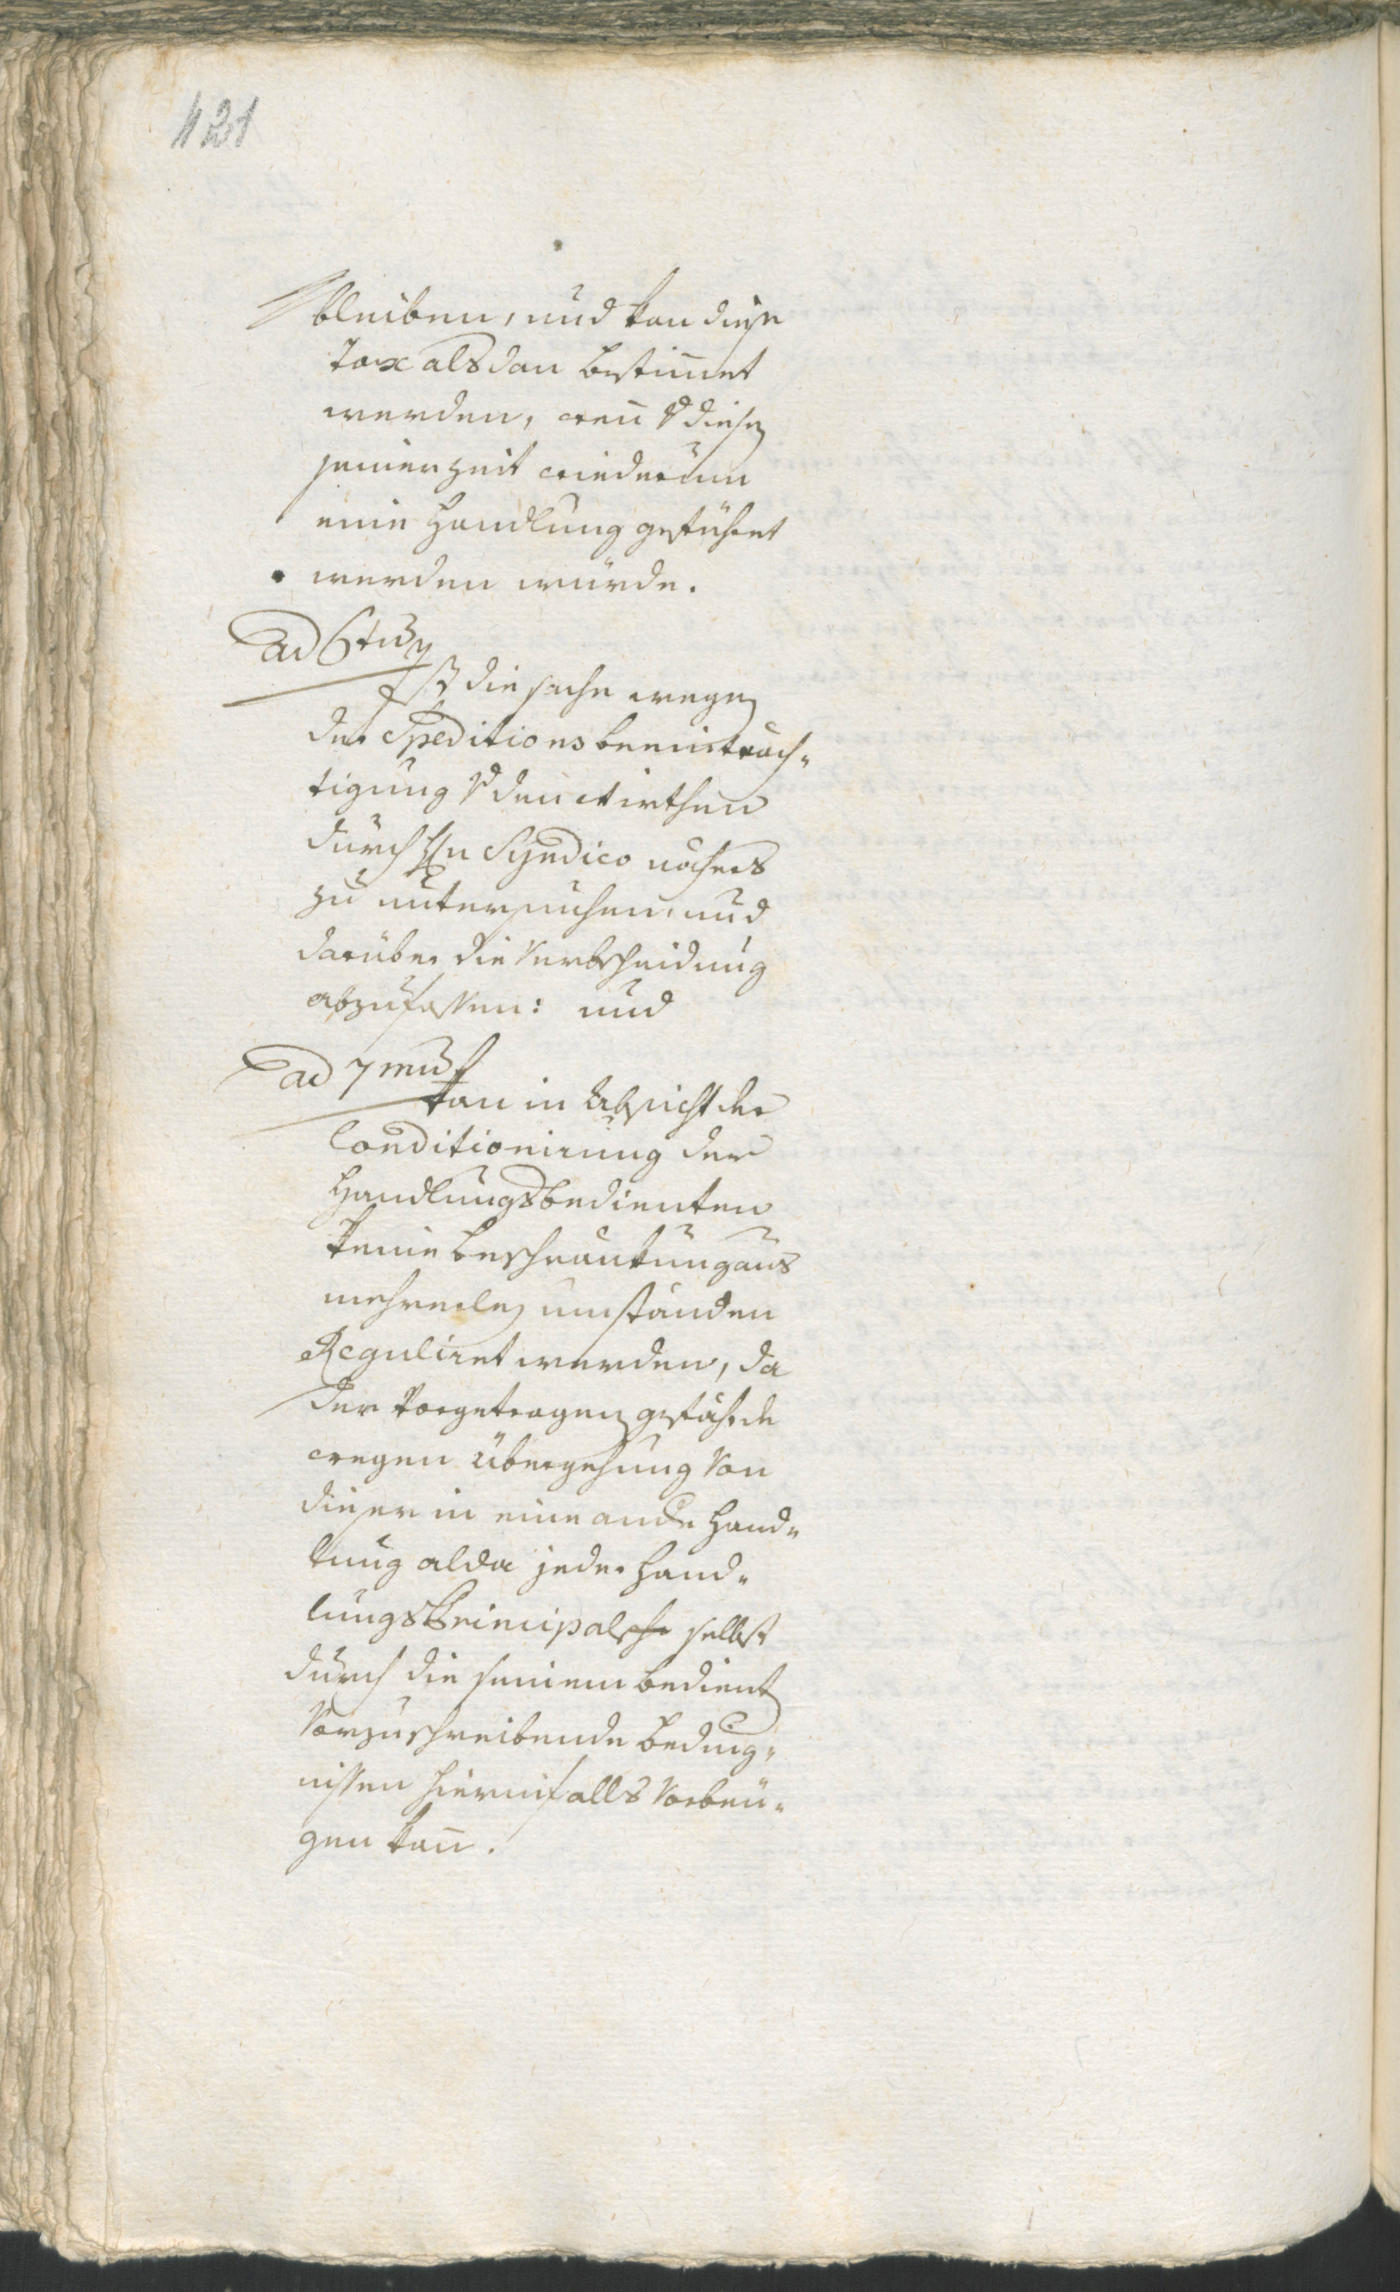 121
bleiben, und kan diese
Tax alsdan bestim̄et
werden, wen̄ v diesen
seiner zeit wiederum
eine Handlung geführt
werden würde.
Ad 6tum
Ist die sache wegen
der Speditions beeinträch-
tigung v den wirthen
durch Hn Syndico nähers
zu untersuchen, und
darüber die Verbscheidung
abzufassen: und
ad 7mum
kan in Absicht der
Conditionirung der
Handlungsbedienten
keine beschrankung aus
mehrerley umständen
Reguliret werden, da
der vorgetragen gefährde
wegen übergehung von
dieser in eine ande Hand-
lung alda jeder Hand-
lungs Principal selbst
durch die seinem bedient
vorzuschreibende beding-
nissen hierinfalls vorbeu-
gen kan̄.